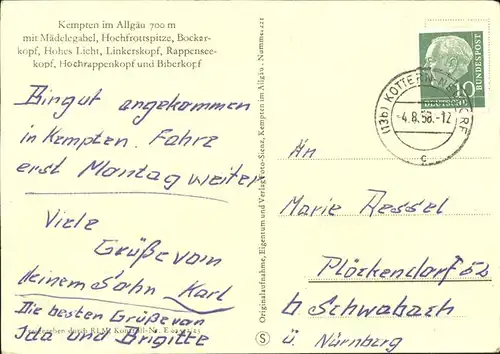 Kempten im Allgäu 700 m
mit Mädelegabel, Hochfrottspitze, Bocker-
kopf, Hohes Licht, Linkerskopf, Rappensee-
kopf, Hochrappenkopf und Biberkopf
Bingut angekommen
in Kempten. Fahre
erst Montag weiter
Viele
Grüße vom
deinem Sohn Karl
Die besten Grüße von
Ida und Brigitte
Originalaufnahme, Eigentum und Verlag Foto-Siene, Kempten im Allgäu. Nummer 221
S
10
DEUTSCHE
BUNDESPOST
(13b) KOTTERN-NEUDORF
-4.8.58.-12
c
Än
Marie Aessel
Plöckendorf 52
b. Schwabach
ü. Nürnberg